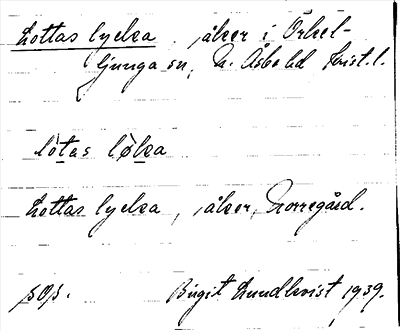 Lottas lycka, åker i Örkel-
ljunga sn, N. Åsbo hd Krist. l.
lòtas lỳka
Lottas lycka, åker, Norregård.
sop. Birgit Lundkvist 1939.